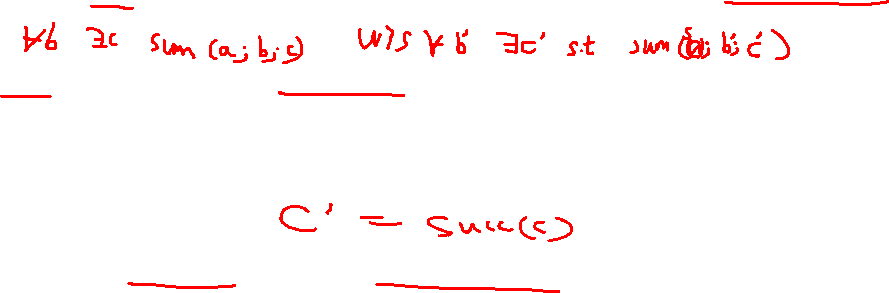 ∀b ∃c sum(a; b; c) WTS ∀b' ∃c' s.t sum( ; b'; c')
c' = succ(c)